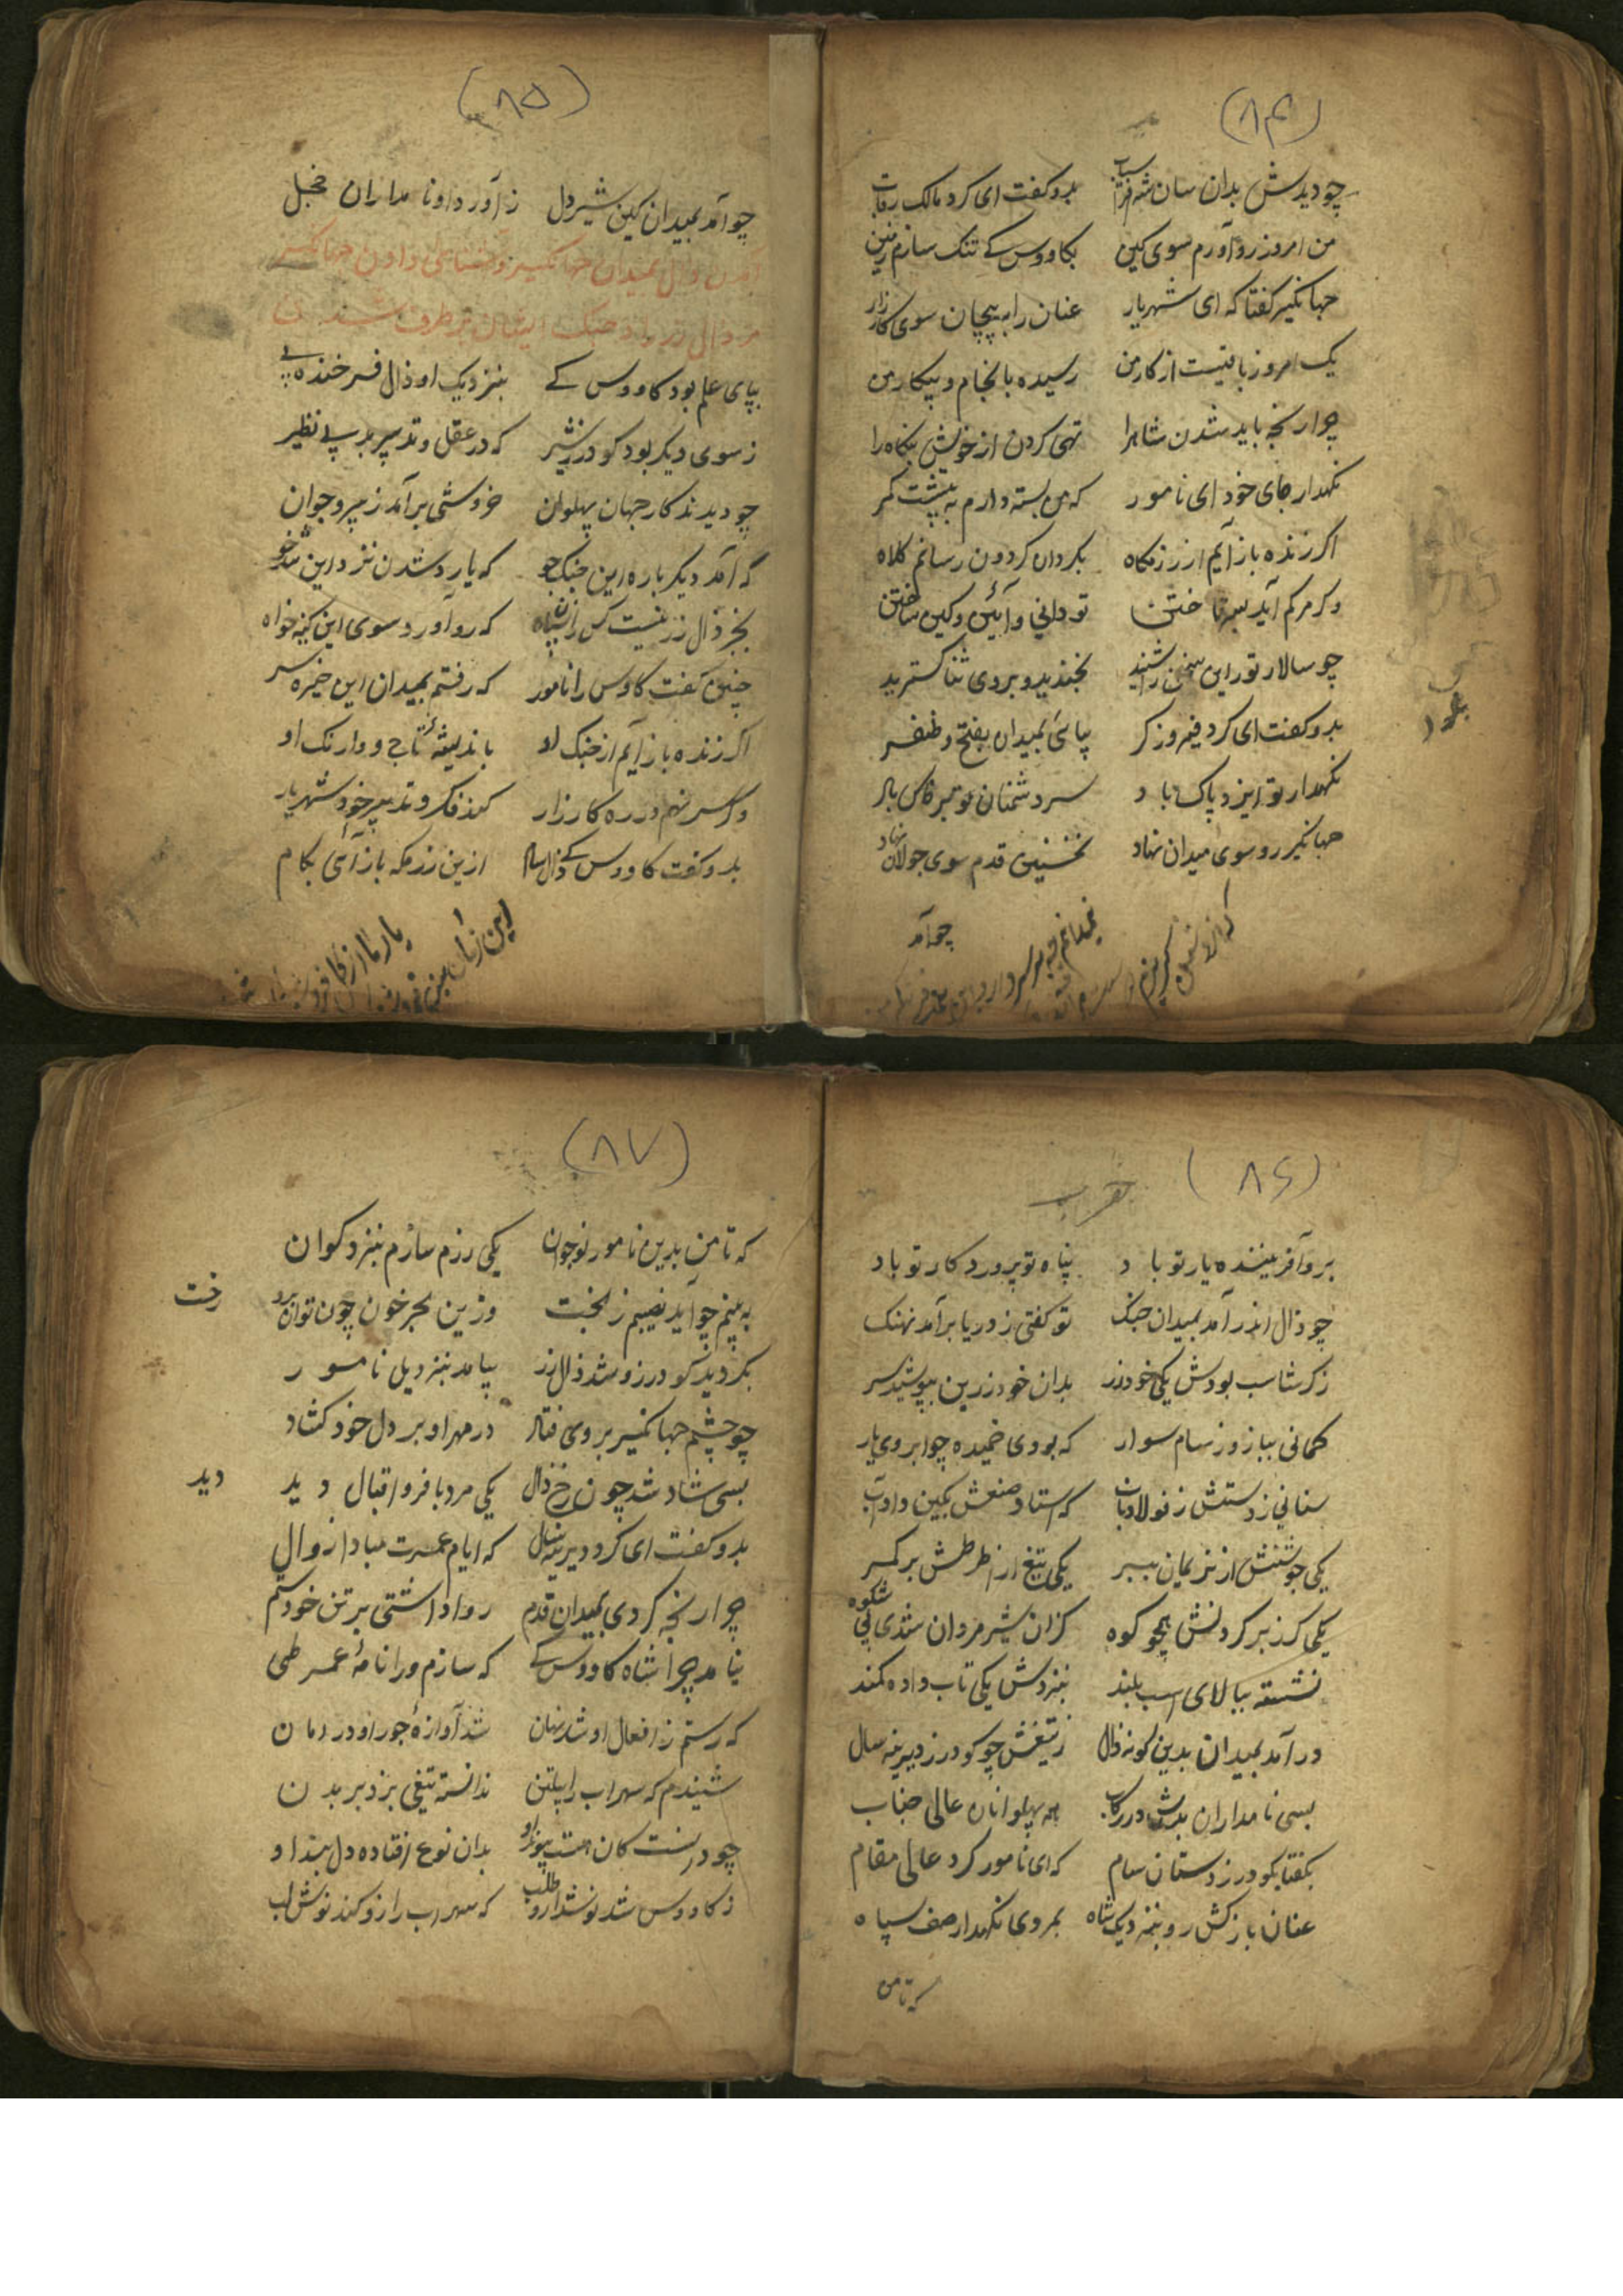 (۸۴)
چو دیدش بدان سان شه افراسیاب بدو گفت ای کرد مالک رقاب
من امروز رو آورم سوی کین بکاووس کے تنک سازم زمین
جهانکیر کفتا که ای شهریار عنان را به پیچان سوی کارزار
یک امروز باقیست از کار من رسیده بانجام و پیکار من
چرا رنجه باید شدن شاه را تهی کردن از خویش بنکاه را
نکهدار جای خود ای نامور که من بسته دارم به پشت کمر
اکر زنده باز آیم از رزمکاه بکردان کردون رسانم کلاه
وکر مرکم آید بسر تاختن تو دانی و آئین و کین ساختن
چو سالار تور این سخن را شنید بخندید و بر وی ثنا کسترید
بدو کفت ای کرد فیروز کر بیائی بمیدان بفتح و ظفر
نکهدار تو ایزد پاک باد سر دشمنان تو بر خاک باد
جهانکیر رو سوی میدان نهاد نخستین قدم سوی جولان نهاد
چو آمد
(۸۵)
چو آمد بمیدان کین شیر دل ز آورد او نامداران خجل
آمدن زال بمیدان جهانکیر و
بپای علم بود کاووس کے بنزدیک او ذال فرخنده پے
ز سوی دیکر بود کودرز پیر که در عقل و تدبیر بد بے نظیر
چو دیدند کار جهان پهلوان خروشی برآمد ز پیر و جوان
که آمد دیکر باره این جنک جو که یارد شدن نزد این تند خو
بجز ذال زر نیست کس زان سپاه که رو آورد سوی این کینه خواه
چنین کفت کاوس را نامور که رفتم بمیدان این خیره سر
اکر زنده باز آیم از جنک او باندیشهٔ تاج و اورنک او
وکر سر نهم در ره کارزار کند فکر و تدبیر خود شهریار
بدو کفت کاووس کے ذال سام ازین رزمکه باز آئی بکام
(۸۶)
برو آفریننده یار تو باد پناه تو پروردکار تو باد
چو ذال اندر آمد بمیدان جنک تو کفتی ز دریا برآمد نهنک
ز کرشاسب بودش یکی خود زر بدان خود زرین بپوشید سر
کمانی ببازو ز سام سوار که بودی خمیده چو ابروی یار
سنانی ز دستش ز فولاد ناب که استاد صنعش بکین داد آب
یکی جوشنش از نریمان ببر یکی تیغ از طرطش بر کمر
یکی کرز بر کردنش همچو کوه کزان شیر مردان شدی بی شکوه
نشسته ببالای اسب بلند بنزدش یکی تاب داده کمند
درآمد بمیدان بدین کونه ذال ز تیغش چو کودرز دیرینه سال
بسی نامداران بدش در رکاب همه پهلوانان عالی جناب
بکفتا بکودرز دستان سام که ای نامور کرد عالی مقام
عنان باز کش رو بنزدیک شاه بمردی نکهدار صف سپاه
که تا من
(۸۷)
که تا من بدین نامور نوجوان یکی رزم سازم بنزد کوان
به بینم چو آید نصیبم ز بخت وزین بحر خون چون توان برد رخت
بکردید کودرز و شد ذال زر بیامد بنزد یل نامور
چو چشم جهانکیر بر وی فتاد در مهر او بر دل خود کشاد
بسی شاد شد چون رخ ذال دید یکی مرد با فر و اقبال دید
بدو کفت ای کرد دیرینه سال که ایام عمرت مبادا زوال
چرا رنجه کردی بمیدان قدم روا داشتی بر تن خود ستم
نیامد چرا شاه کاووس کے که سازم ورا نامهٔ عمر طی
که رستم ز افعال او شد نهان شد آوازهٔ جور او در زمان
شنیدم که سهراب را پیلتن ندانسته تیغی بزد بر بدن
چو دانست کان هست پیوند او بدان نوع افتاده دلبند او
ز کاووس شد نوشدارو طلب که سهراب را زو کند نوش لب